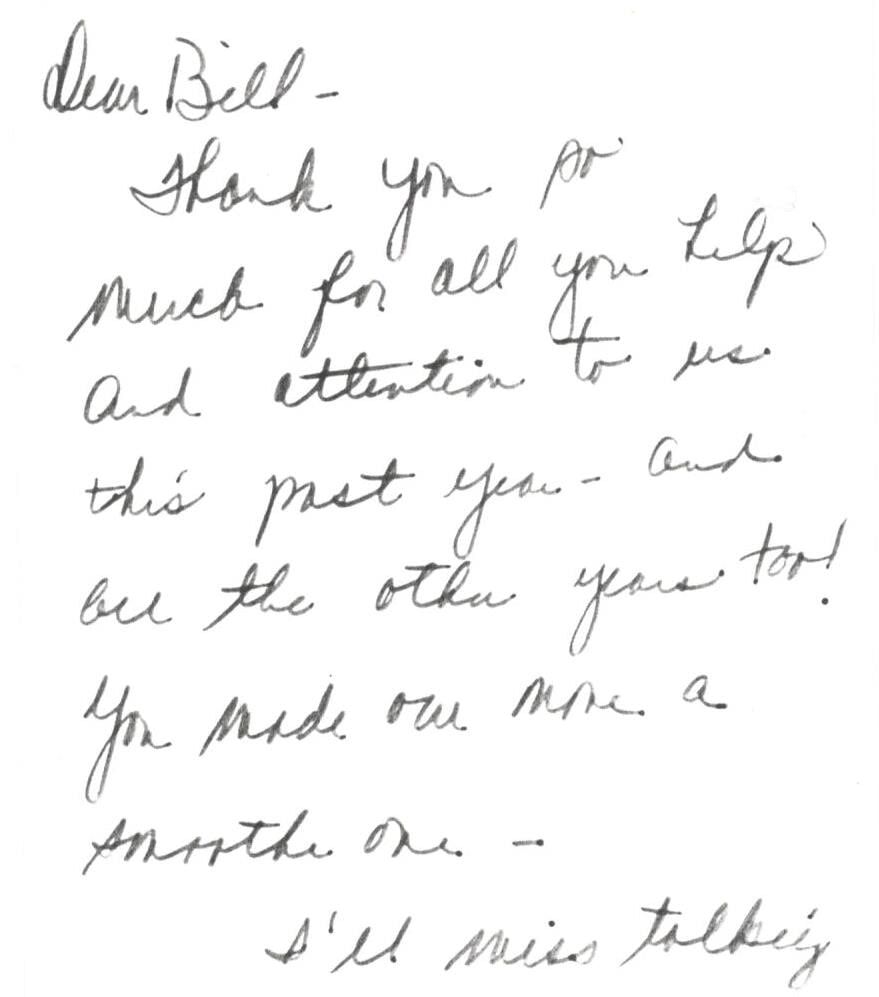 Dear Bill -
Thank you so
much for all you help
and attention to us
this past year - and
all the other years too!
You made our move a
smoothe one -
I'll miss talking